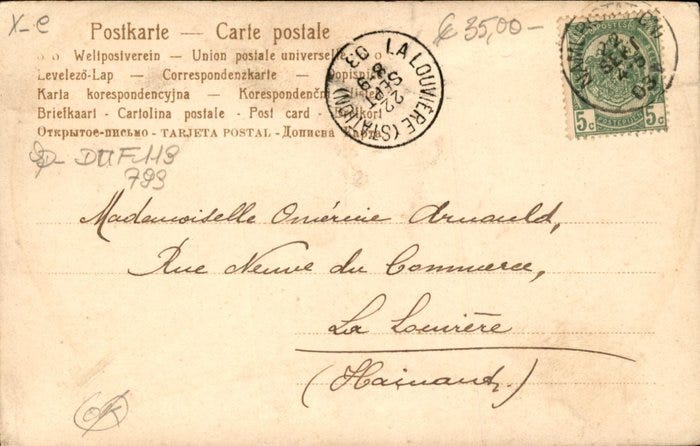 X-e
€ 35,00-
Postkarte — Carte postale
Weltpostverein — Union postale universelle
Levelező-Lap — Correspondenzkarte —
Karta korespondencyjna —
Briefkaart - Cartolina postale - Post card -
Открытое-письмо - TARJETA POSTAL - Дописна
LA LOUVIÈRE (STATION) 03
8-9
SEPT
22
(STATION)
22
SEPT
4
03
5c 5c
DUF 119
799
Mademoiselle Omérine Arnauld,
Rue Neuve du Commerce,
La Louvière
(Hainaut.)
OK